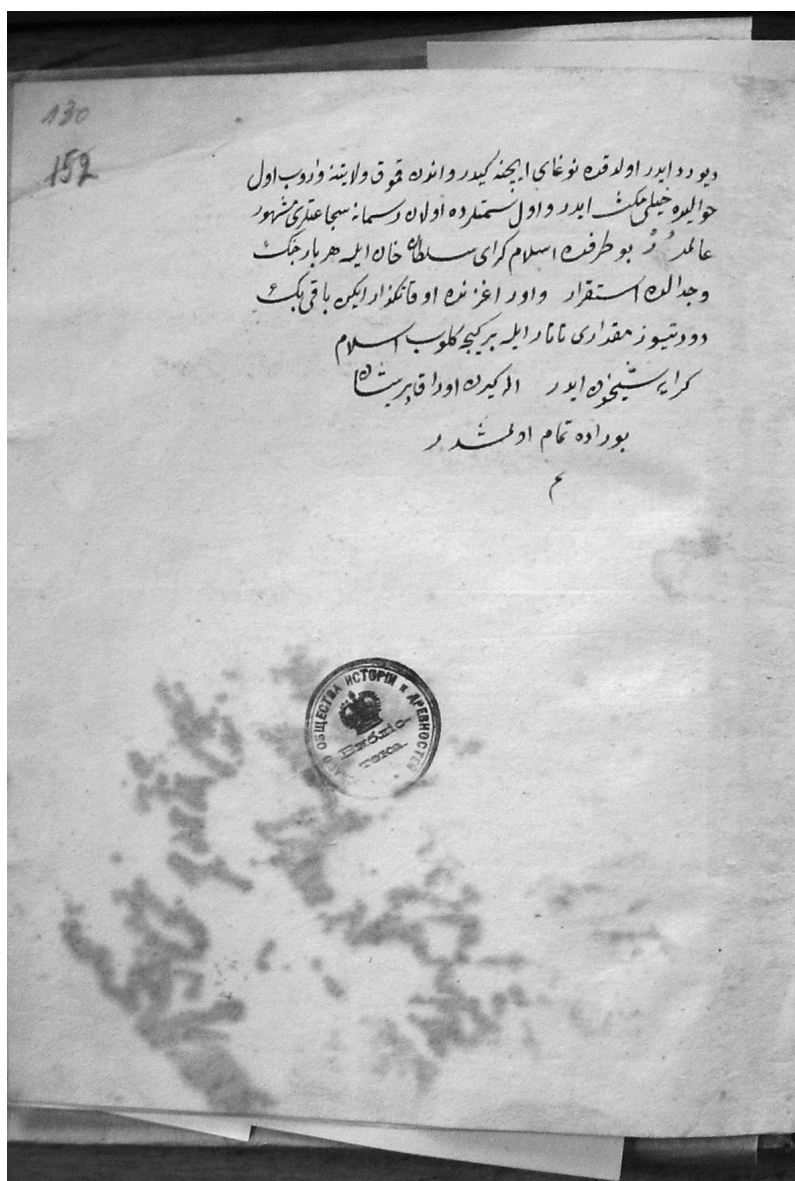 130
152
ديو رد ايدر اولدقده نوغاى ايچنه كيدر واندن قموق ولايتنه واروب اول
حواليده خيلى مكث ايدر و اول سمتلرده اولان رسمانه شجاعتلرى مشهور
عالمدر بو طرفده اسلام كراى سلطان خان ايله هر بار جنك
وجدالده استقرار و اور اغزنده اوقاتكذار ايكن باقى بك
دورتيوز مقدارى تاتار ايله بر كيجه كلوب اسلام
كرايه شبيخون ايدر
بوراده تمام اولمشدر
م
ОБЩЕСТВА ИСТОРІИ и ДРЕВНОСТЕЙ
Библіо-
тека.